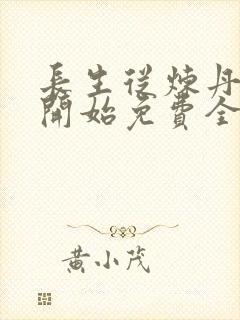 長生從煉丹
開始免費全
黃小茂